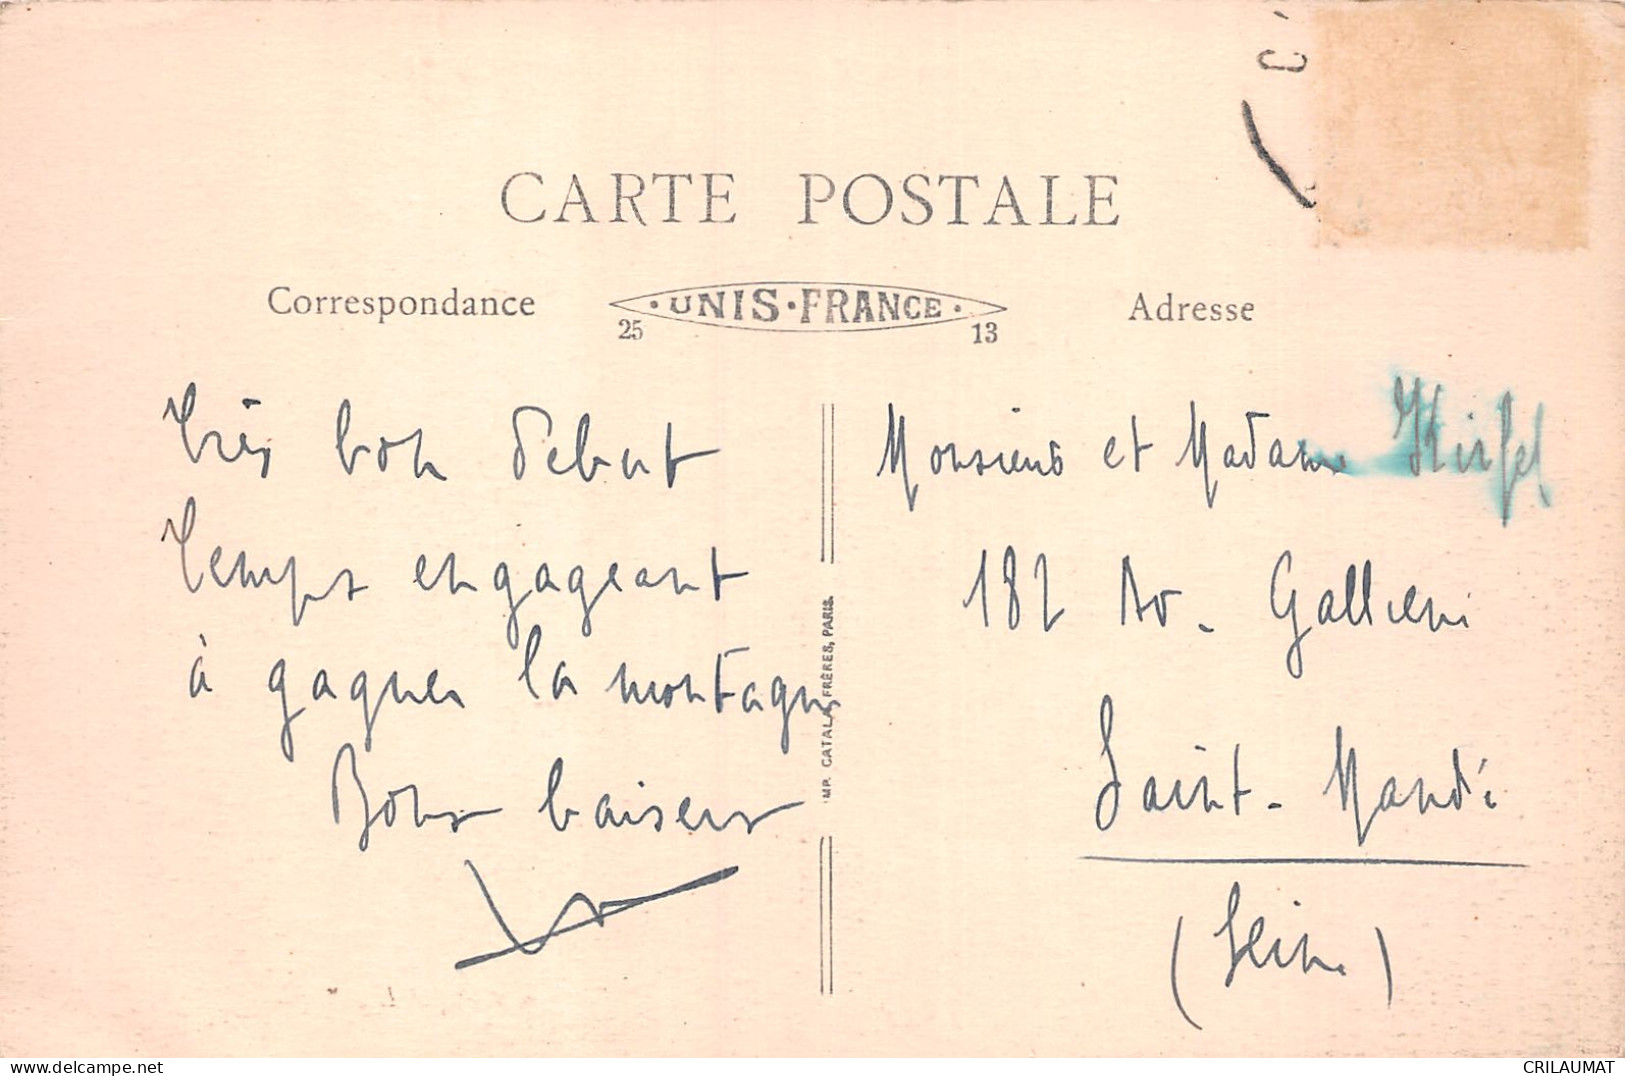 CARTE POSTALE
Correspondance
· UNIS · FRANCE ·
25 13
Adresse
Très bon debut
Temps engageant
à gagner la montagne
Bons baisers
IMP. CATALA FRÈRES, PARIS.
Monsieur et Madame
182 Av. Gallieni
Saint-Mandé
(Seine)
CRILAUMAT